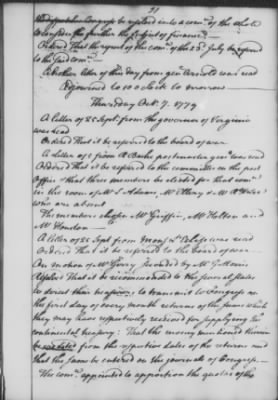 31
Congress be resolved into a com̃ of the whole
to consider the farther the subject of finance
Ordered That the report of the com̃ of the 23d July be referred
to the said com̃
A letter of this day from gen Arnold was read
adjourned to 10 oClock to morrow
Thursday Octr 7. 1779
A letter of 25 Septr from the governor of Virginia
was read
Ordered That it be referred to the board of war
A letter of 5 from R Bache postmaster genl was read
Ordered That it be referred to the committee on the post
Office & that three members be elected for that comee
in the room of Mr S Adams, Mr Ellery & Mr
who are absent
The members chosen Mr Griffin, Mr Holten and
Mr Houston
A letter of 28 Sept from was read
Ordered That it be referred to the board of war
On motion of Mr Gerry seconded by Mr
Resolved That it be recommended to the several states
to direct their treasurers to transmit to Congress on
the first day of every month returns of the sums which
they may have respectively received for supplying the
continental treasury: That the money mentioned therein
be from the respective dates of the returns and
that the same be entered on the journals of Congress
The com̃ appointed to apportion the quotas of the